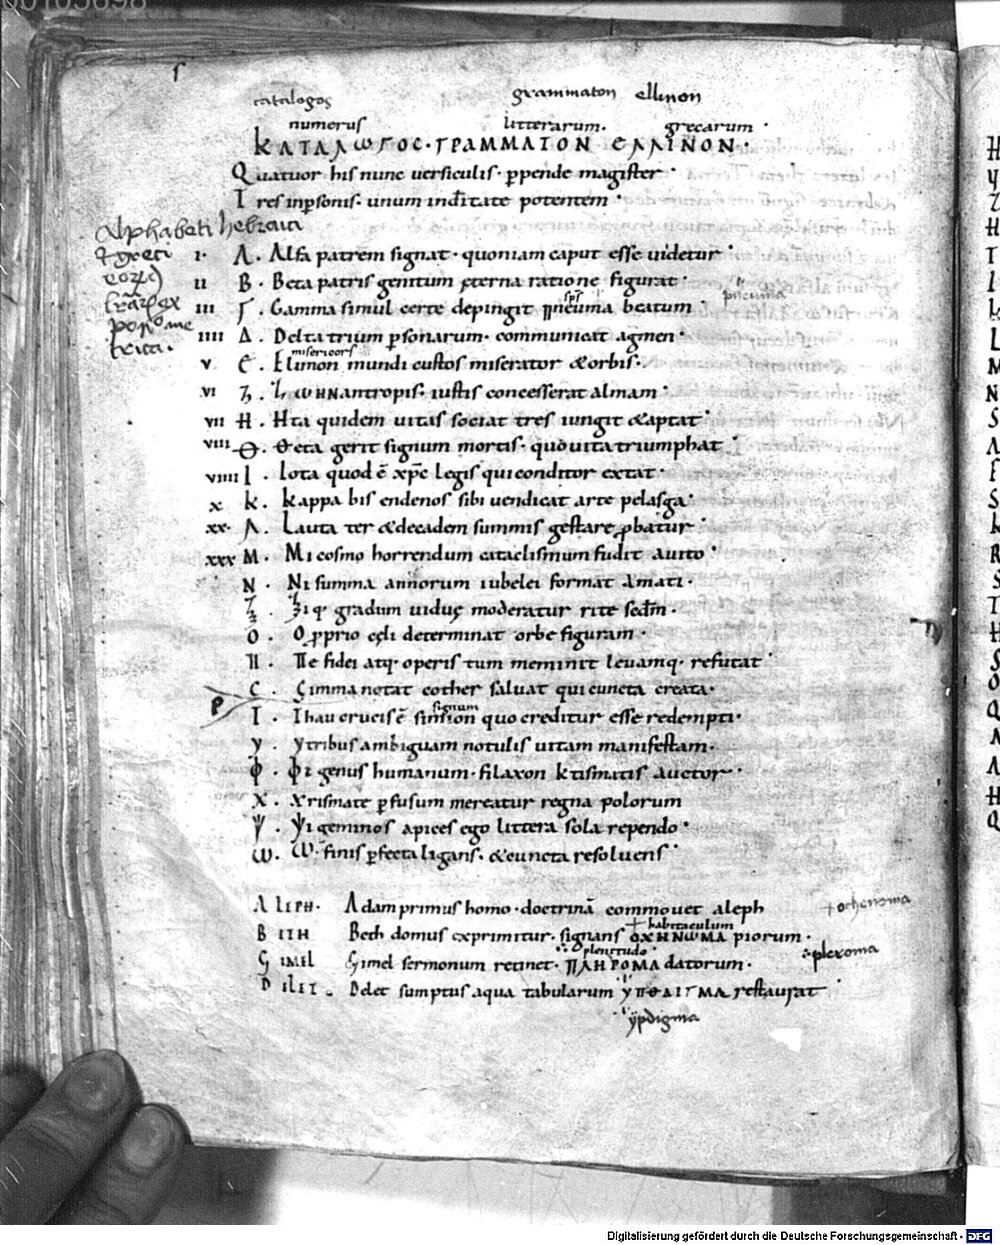 00103698
catalogos grammaton ellinon
numerus litterarum· grecarum·
ΚΑΤΑΛωΓΟC·ΓΡΑΜΜΑΤΟΝ ЄΛΛΙΝΟΝ·
Quatuor his nunc versiculis· ꝑpende magister·
Tres inꝑsonis· unum inditate potentem·
Alphabeti hebraica
& greci
I· Α· Alfa patrem signat· quoniam caput esse uidetur·
II Β· Beta patris genitum ęterna ratione figurat·
sps̄ pneuma
III Γ· Gamma simul certe depingit pneuma beatum
IIII Δ· Delta trium ꝑsonarum· communicat agmen·
misericors
V Є· Elimon mundi custos miserator & orbis·
VI Ζ· ΖωΗΝ antropis· iustis concesserat almam
VII Η· Ηta quidem uitas sociat tres iungit & aptat·
VIII Θ· Θeta gerit signum mortis· quo uita triumphat·
VIIII Ι· Iota quod ē xp̄c legis qui conditor extat·
X Κ· Kappa bis endenos sibi uendicat arte pelasga·
XX· Λ· Lauta ter & decadem summis gestare ꝓbatur·
XXX Μ· Mi cosmo horrendum cataclismum fudit auito·
Ν· Ni summa annorum iubelei format amati·
Ξ· Ξi q· gradum uiduę moderatur rite sedm̄·
Ο· O ꝓprio cęli determinat orbe figuram·
Π· Πe fidei atq· operis tum meminit leuamq· refutat·
C· Simma notat cother saluat qui cuncta creata·
P
signum
Τ· Thau crucis ē simion quo creditur esse redempti·
Υ· Y tribus ambiguam notulis uitam manifestam·
Φ· Φi genus humanum· filaxon ktismatis auctor·
Χ· Xrismate ꝑfusum mereatur regna polorum
Ψ· Ψi geminos apices ego littera sola rependo·
ω· ω· finis ꝑfecta ligans· & cuncta resoluens·
ALEPH· Adam primus homo· doctrinā commouet aleph
+ ochenoma
+ habitaculum
BETH Beth domus exprimitur· signans ΟΧΗΝωΜΑ piorum·
plenitudo
GIMEL Gimel sermonum retinet· ΠΛΗΡΟΜΑ datorum·
pleroma
DELET· Delet sumptus aqua tabularum ΥΠΟΔΙΓΜΑ restaurat·
ypdigma
Digitalisierung gefördert durch die Deutsche Forschungsgemeinschaft - DFG